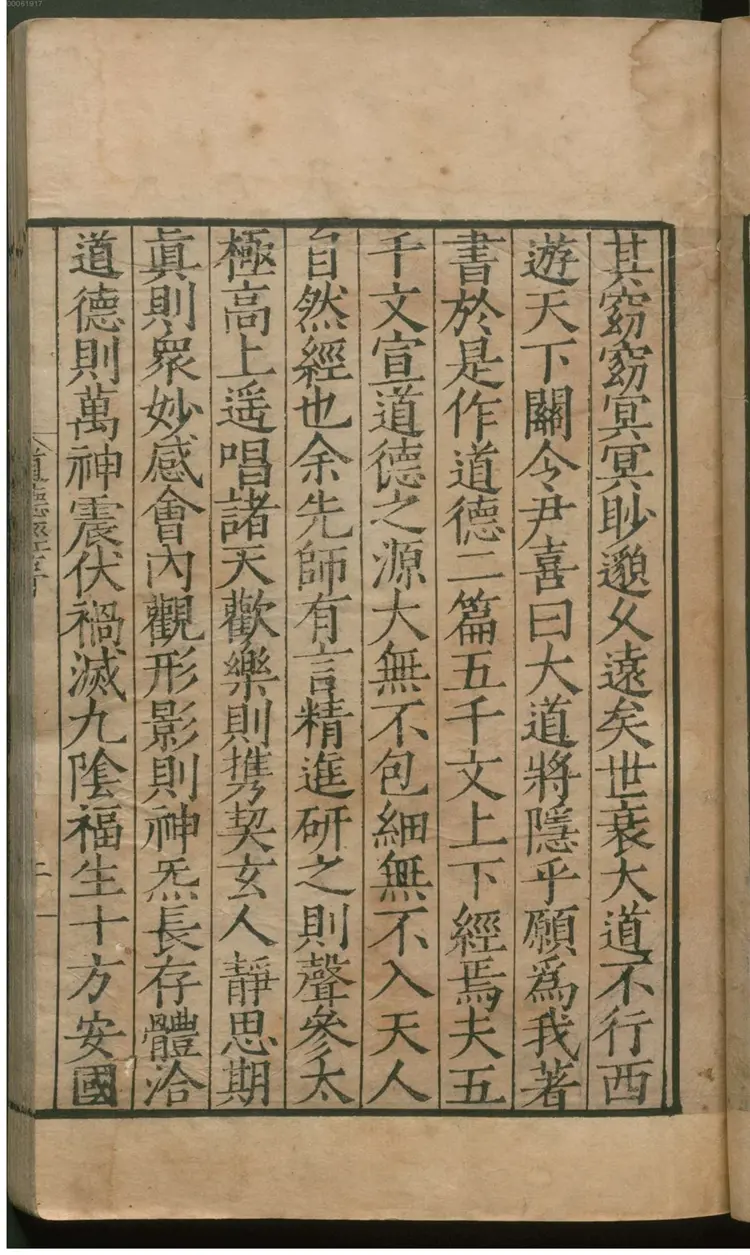 其窈窈冥冥眇邈久遠矣世衰大道不行西
遊天下關令尹喜曰大道將隱乎願爲我著
書於是作道德二篇五千文上下經焉夫五
千文宣道德之源大無不包細無不入天人
自然經也余先師有言精進研之則聲參太
極高上遥唱諸天歡樂則携契玄人靜思期
眞則衆妙感會內觀形影則神炁長存體洽
道德則萬神震伏禍滅九陰福生十方安國
道德經序
二
00061917